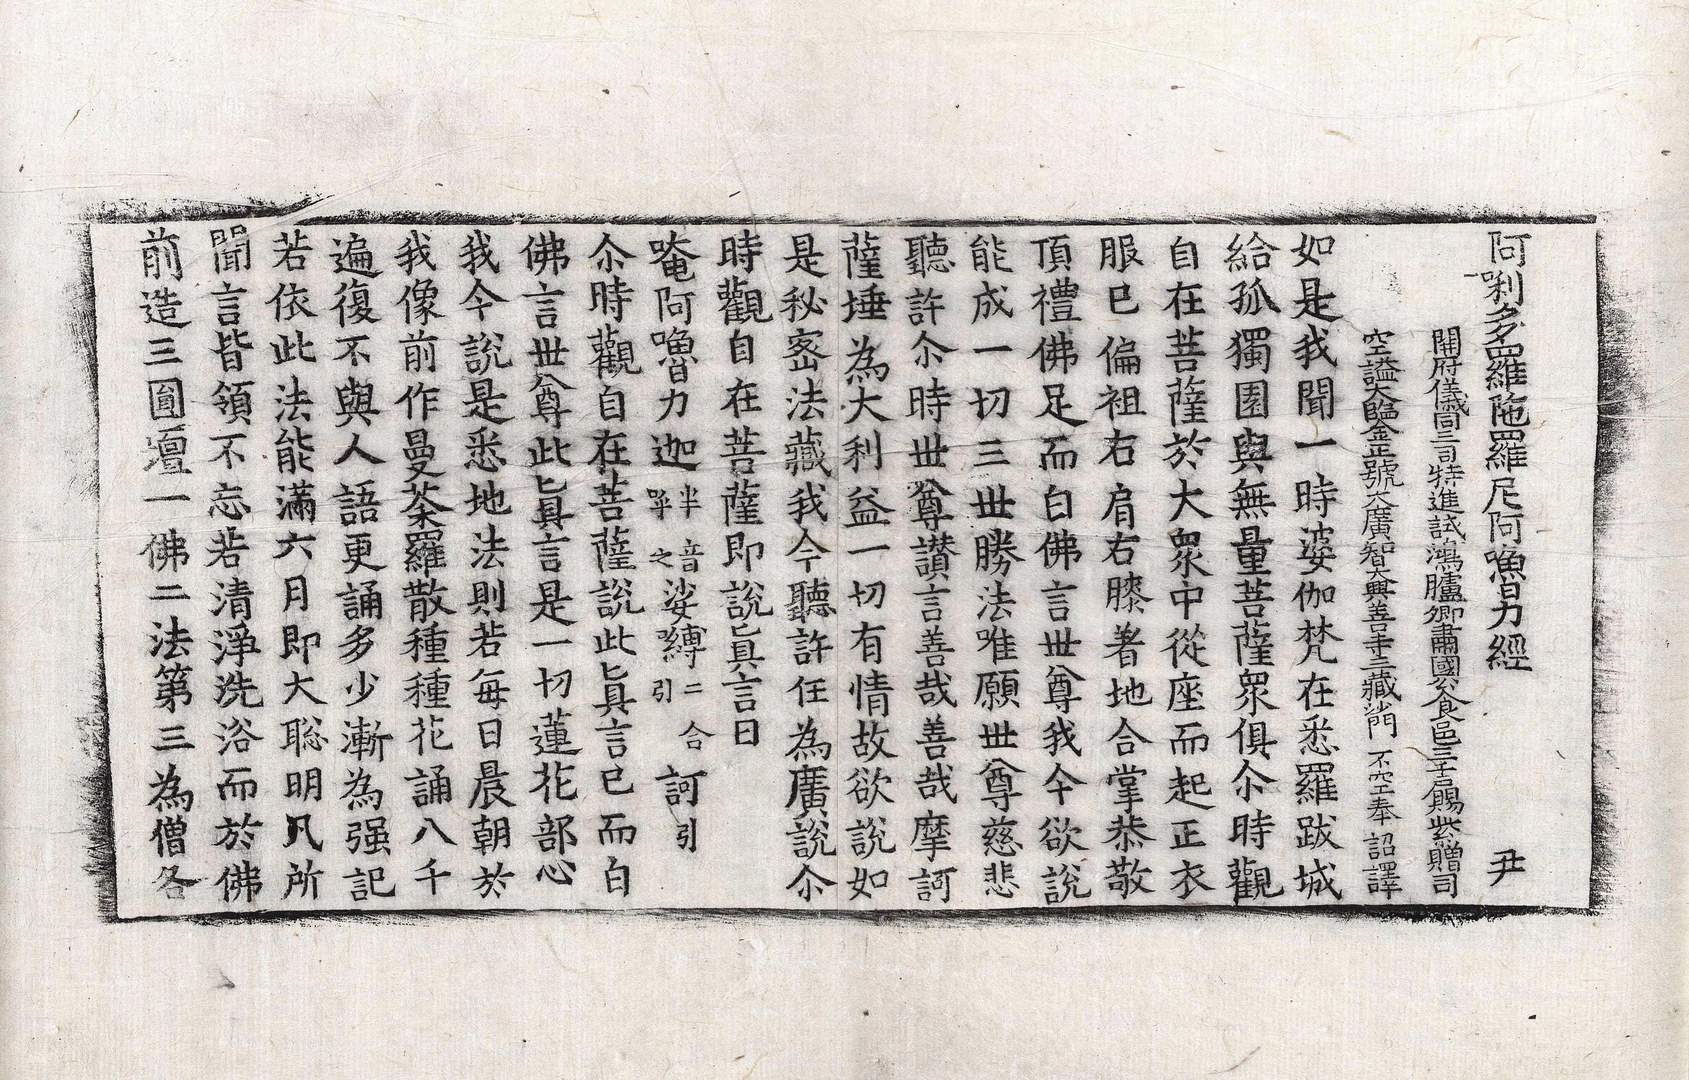 阿唎多羅陁羅尼阿嚕力經 尹
開府儀同三司特進試鴻臚卿肅國公食邑三千戶賜紫贈司
空謚大鑑正號大廣智大興善寺三藏沙門不空奉 詔譯
如是我聞一時婆伽梵在悉羅跋城
給孤獨園與無量菩薩衆俱尒時觀
自在菩薩於大衆中從座而起正衣
服已偏袒右肩右膝著地合掌恭敬
頂禮佛足而白佛言世尊我今欲說
能成一切三世勝法唯願世尊慈悲
聽許尒時世尊讃言善哉善哉摩訶
薩埵為大利益一切有情故欲說如
是秘密法藏我今聽許任為廣說尒
時觀自在菩薩即說眞言曰
唵阿嚕力迦半音呼之娑嚩二合引訶引
尒時觀自在菩薩說此眞言已而白
佛言世尊此眞言是一切蓮花部心
我今說是悉地法則若每日晨朝於
我像前作曼荼羅散種種花誦八千
遍復不與人語更誦多少漸為强記
若依此法能滿六月即大聡明凡所
聞言皆領不忘若清淨洗浴而於佛
前造三圓壇一佛二法第三為僧各